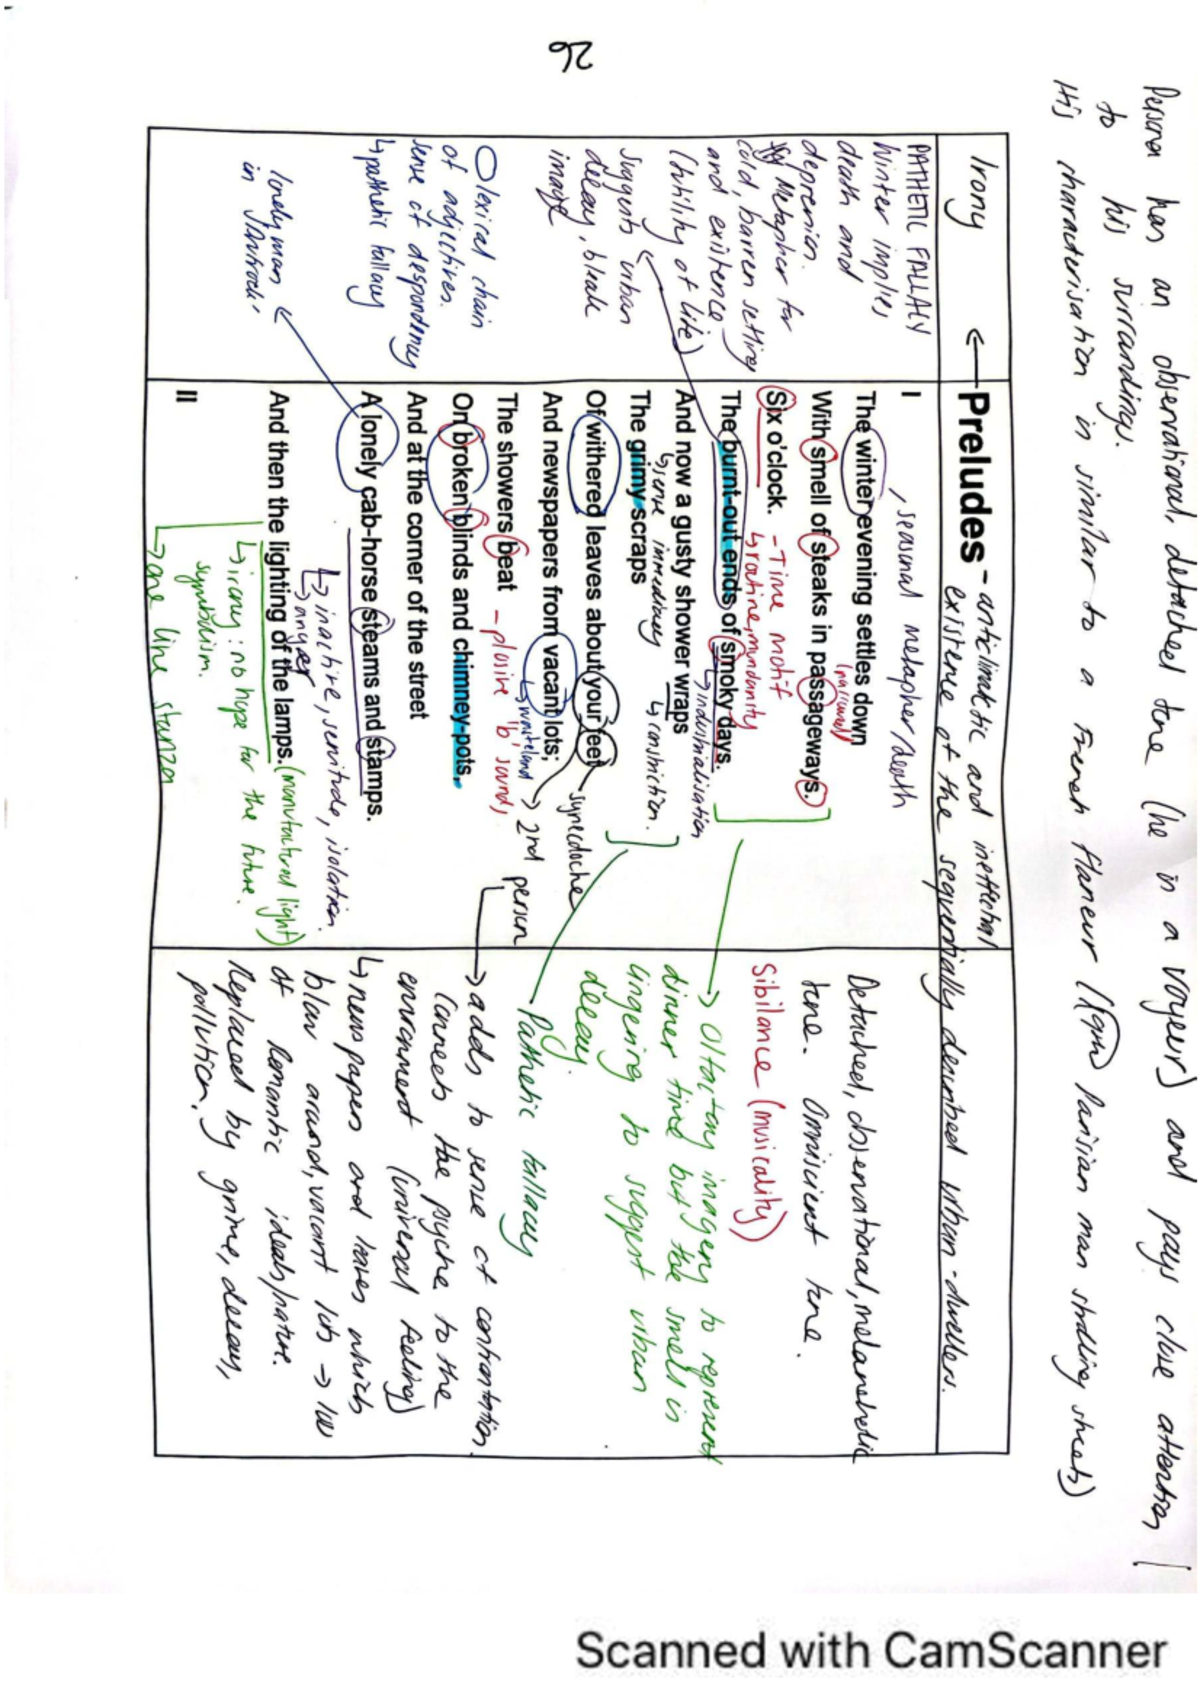 Persona has an observational, detached tone (he in a voyeur) and pays close attention
to his surroundings.
His characterisation is similar to a French flaneur ( Parisian man strolling streets)
26
Irony ← Preludes - anticlimactic and ineffectual
existence of the sequentially described urban-dwellers.
PATHETIC FALLACY
Winter implies
death and
depression.
Metapher for
cold, barren setting
and existence
(futility of life)
suggests urban
decay, bleak
image
O lexical chain
of adjectives.
sense of despondency
↳ pathetic fallacy
lonely man
in
I
, seasonal metapher/death
The winter evening settles down
With smell of steaks in passageways.
Six o'clock. - Time motif
↳ routine, mundanity
The burnt-out ends of smoky days.
↳ industrialisation
And now a gusty shower wraps
↳ sense immediacy ↳ constriction.
The grimy scraps
Of withered leaves about your feet
synecdoche
And newspapers from vacant lots;
↳ wasteland → 2nd person
The showers beat - plosive 'b' sound,
On broken blinds and chimney-pots.
And at the corner of the street
A lonely cab-horse steams and stamps.
↳ inactive, servitude, isolation.
↳ anger
And then the lighting of the lamps. (manufactured light)
↳ irony: no hope for the future.
symbolism.
→ one line stanza
II
Detached, observational, melancholic
tone. Omniscient tone.
Sibilance (musicality)
→ Olfactory imagery to represent
dinner time but the smell is
lingering to suggest urban
decay.
Pathetic fallacy
→ adds to sense of confrontation
Connects the psyche to the
environment (universal feeling)
↳ newspapers and leaves which
blow around, vacant lots →
of Romantic ideals/nature.
Replaced by grime, decay,
pollution.
Scanned with CamScanner